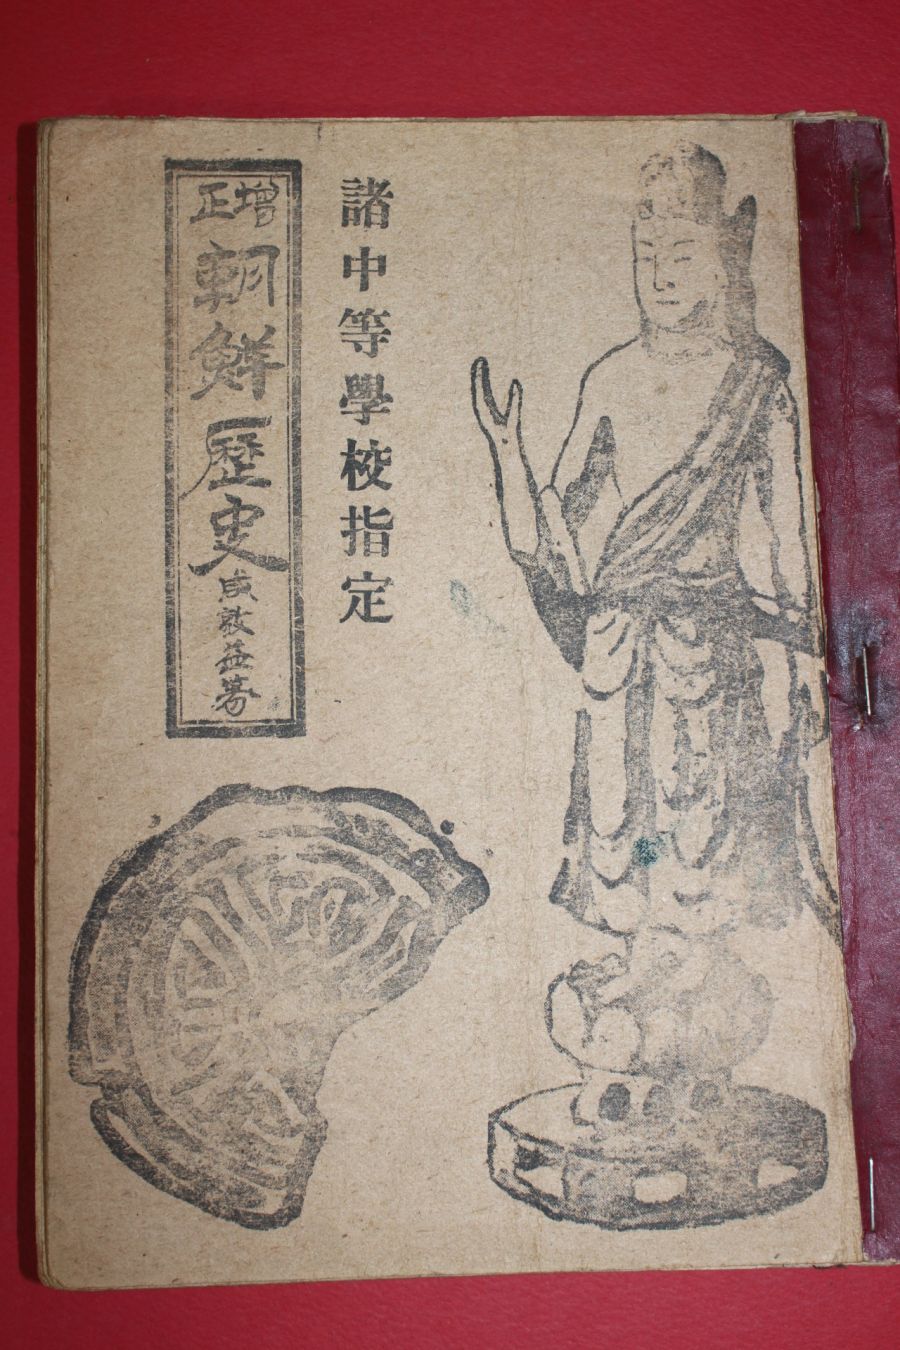 諸中等學校指定
增正
朝鮮歷史
成敬益